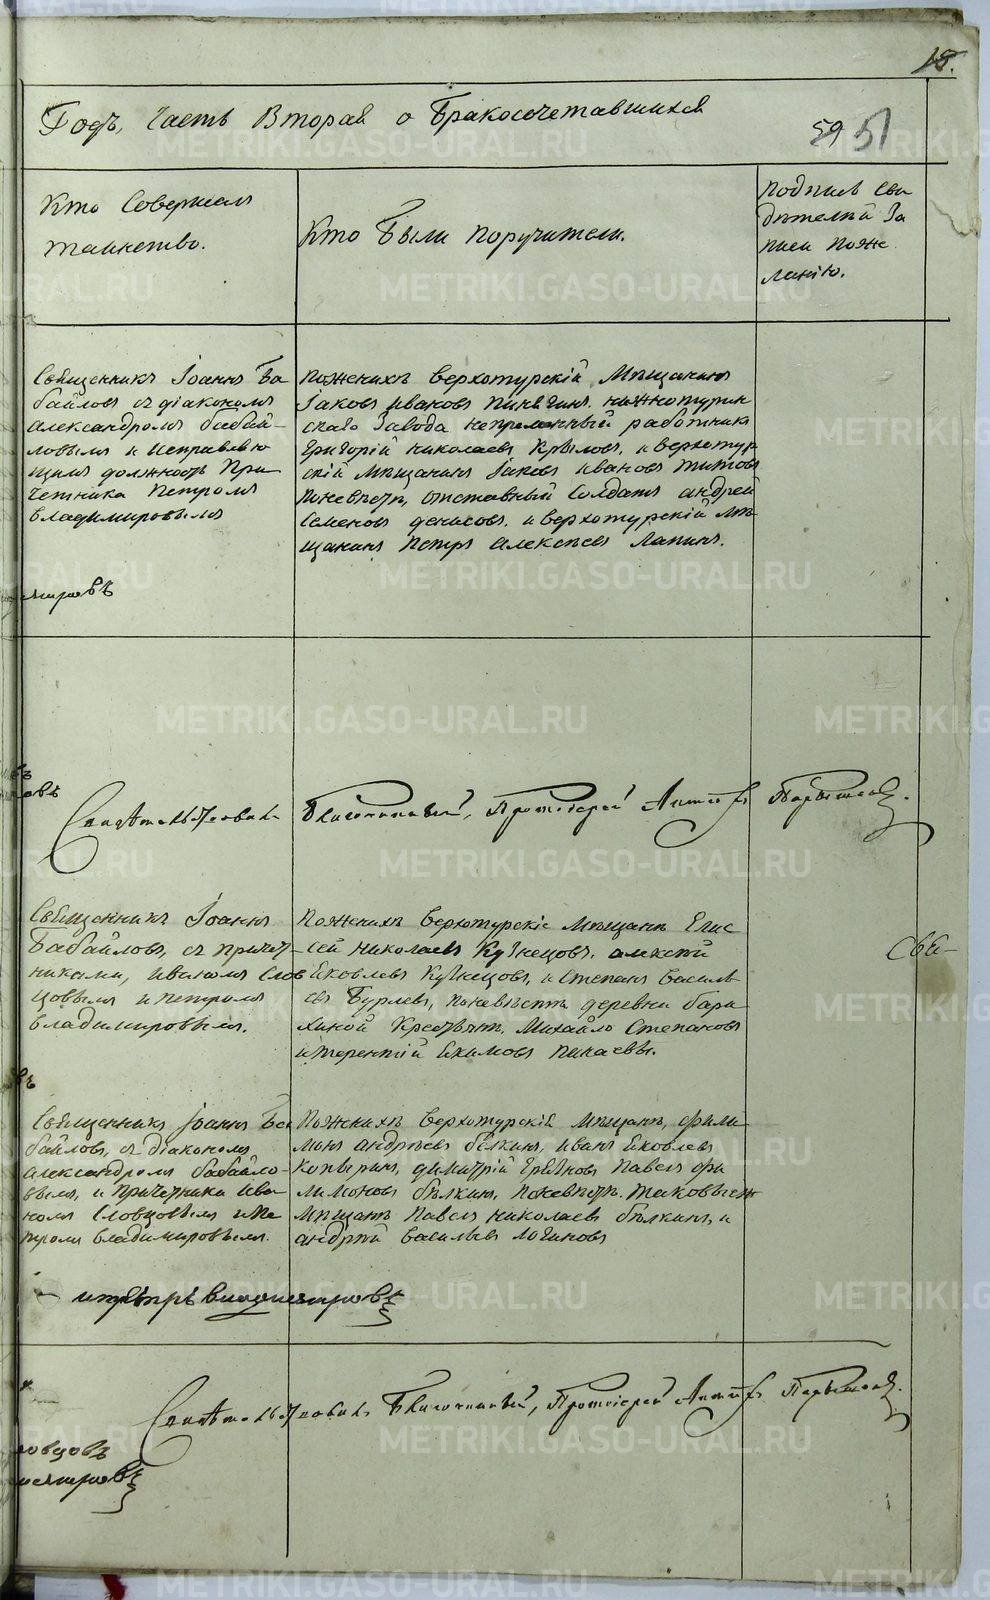 18.
Годъ, Часть Вторая о Бракосочетавшихся
59 51
Кто Совершалъ
таинство.
Кто Были поручители.
подпись Сви
дѣтелей За
писи пожѣ
ланію.
Священникъ Іоаннъ Ба
байловъ съ діакономъ
александромъ бабай-
ловымъ и исправляю
щимъ должность При
четника Петромъ
владимировымъ
пожениху верхотурскій Мѣщанинъ
Іаковъ ивановъ пинѣгинъ нижнотурин
скаго Завода непремѣнный работникъ
Григорій николаевъ Крыловъ, и верхотур
скій Мѣщанинъ Іаковъ ивановъ титовъ
поневѣстѣ, отставный Солдатъ андрей
Семеновъ денисовъ, и верхотурскій мѣ
щанинъ Петръ алексѣевъ Лапинъ.
Свидѣтельствовалъ Благочинный, Протоіерей
Священникъ Іоаннъ
Бабайловъ, съ причет
никами, иваномъ Слов
цовымъ и петромъ
владимировымъ.
пожениху верхотурскіе мѣщане Елис
сей николаевъ Кузнецовъ, алексѣй
Яковлевъ Кузнецовъ, и Степанъ василь
евъ Бурлевъ, поневѣстѣ деревни бара
хиной Крестьяне, Михайло Степановъ
и терентій Екимовъ
Сви-
Священникъ Іоаннъ Ба
байловъ, съ діакономъ
александромъ бабайло-
вымъ, и причетники Ива
номъ Словцовымъ и Пе
тромъ владимировымъ.
Пожениху верхотурскій мѣщане, фили
монъ андрѣевъ бѣлкинъ, иванъ Яковлевъ
Копыринъ, димитрій Павелъ фи
лимоновъ бѣлкинъ, поневѣстѣ. таковыеж
мѣщане Павелъ николаевъ бѣлкинъ, и
андрей васильевъ логиновъ
владимировъ
Свидѣтельствовалъ Благочинный, Протоіерей
METRIKI.GASO-URAL.RU